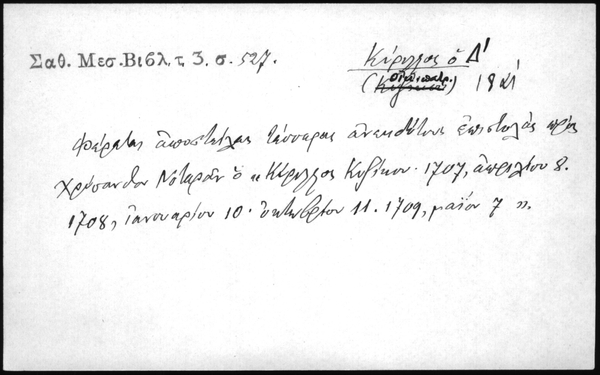 Σαθ. Μεσ. Βιβλ. τ. 3. σ. 527.
Κύριλλος ὁ Δ'
οἰκ. πατρ.
(Κυζίκου) 1821
Φέρεται ἀποστείλας τέσσαρας ἀνεκδότους ἐπιστολὰς πρὸς
Χρύσανθον Νοταρᾶν ὁ "Κύριλλος Κυζίκου· 1707, ἀπριλίου 8.
1708, ἰανουαρίου 10· ὀκτωβρίου 11. 1709, μαΐου 7".